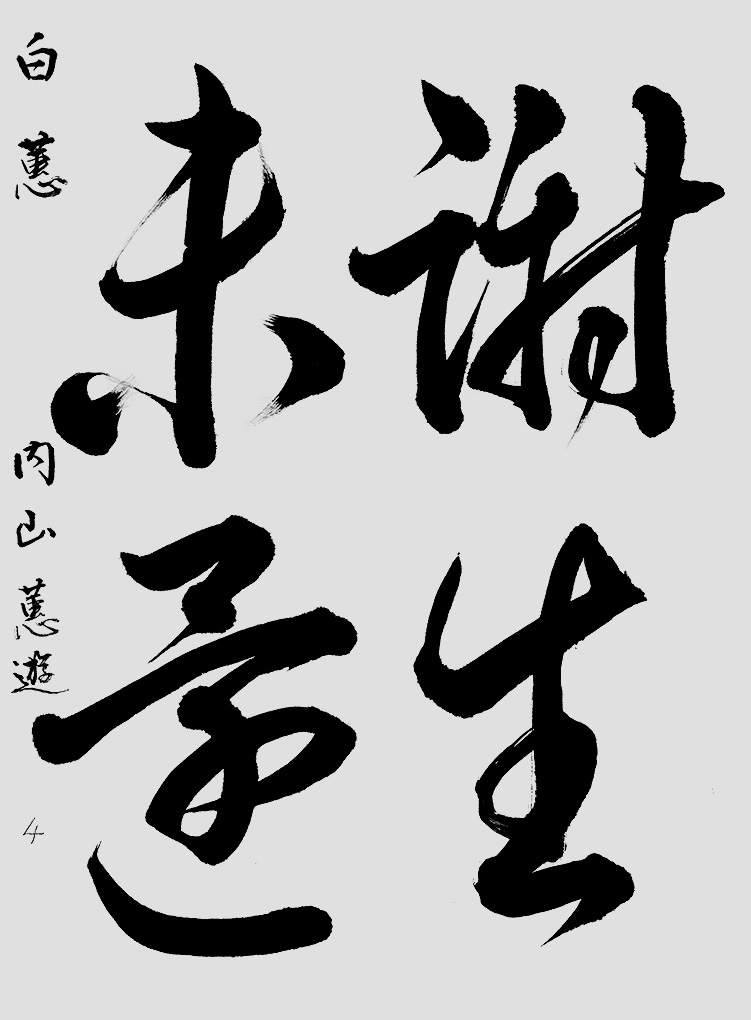 謝生
未還
白蕙 内山蕙遊 4